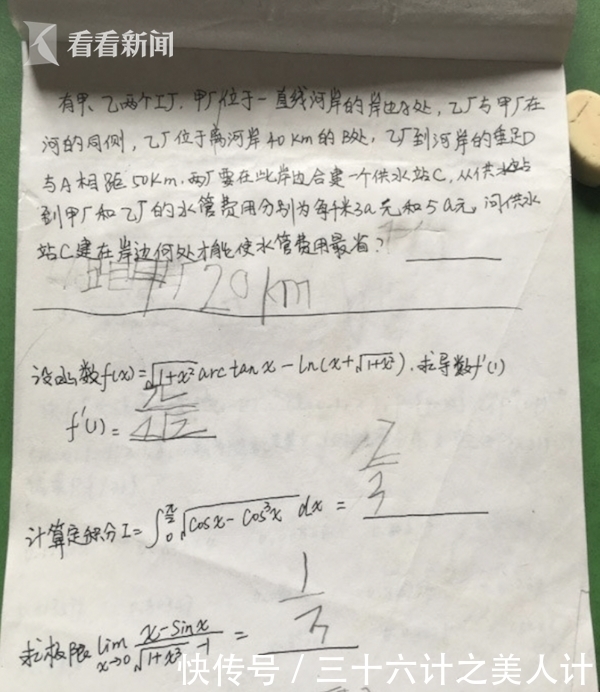 看看新闻
有甲、乙两个工厂,甲厂位于一直线河岸的岸边A处,乙厂与甲厂在
河的同侧,乙厂位于离河岸40km的B处,乙厂到河岸的垂足D
与A相距50km.两厂要在此岸边合建一个供水站C,从供水站
到甲厂和乙厂的水管费用分别为每千米3a元和5a元,问供水
站C建在岸边何处才能使水管费用最省?
20km
设函数f(x)=√(1+x²) arctanx-ln(x+√(1+x²)).求导数f'(1)
f'(1)=
计算定积分I=∫₀^(π/2) √(cosx-cos³x) dx = 2/3
求极限 lim x→0 (x-sinx)/(√(1+x³)-1) = 1/3
快传号/三十六计之美人计